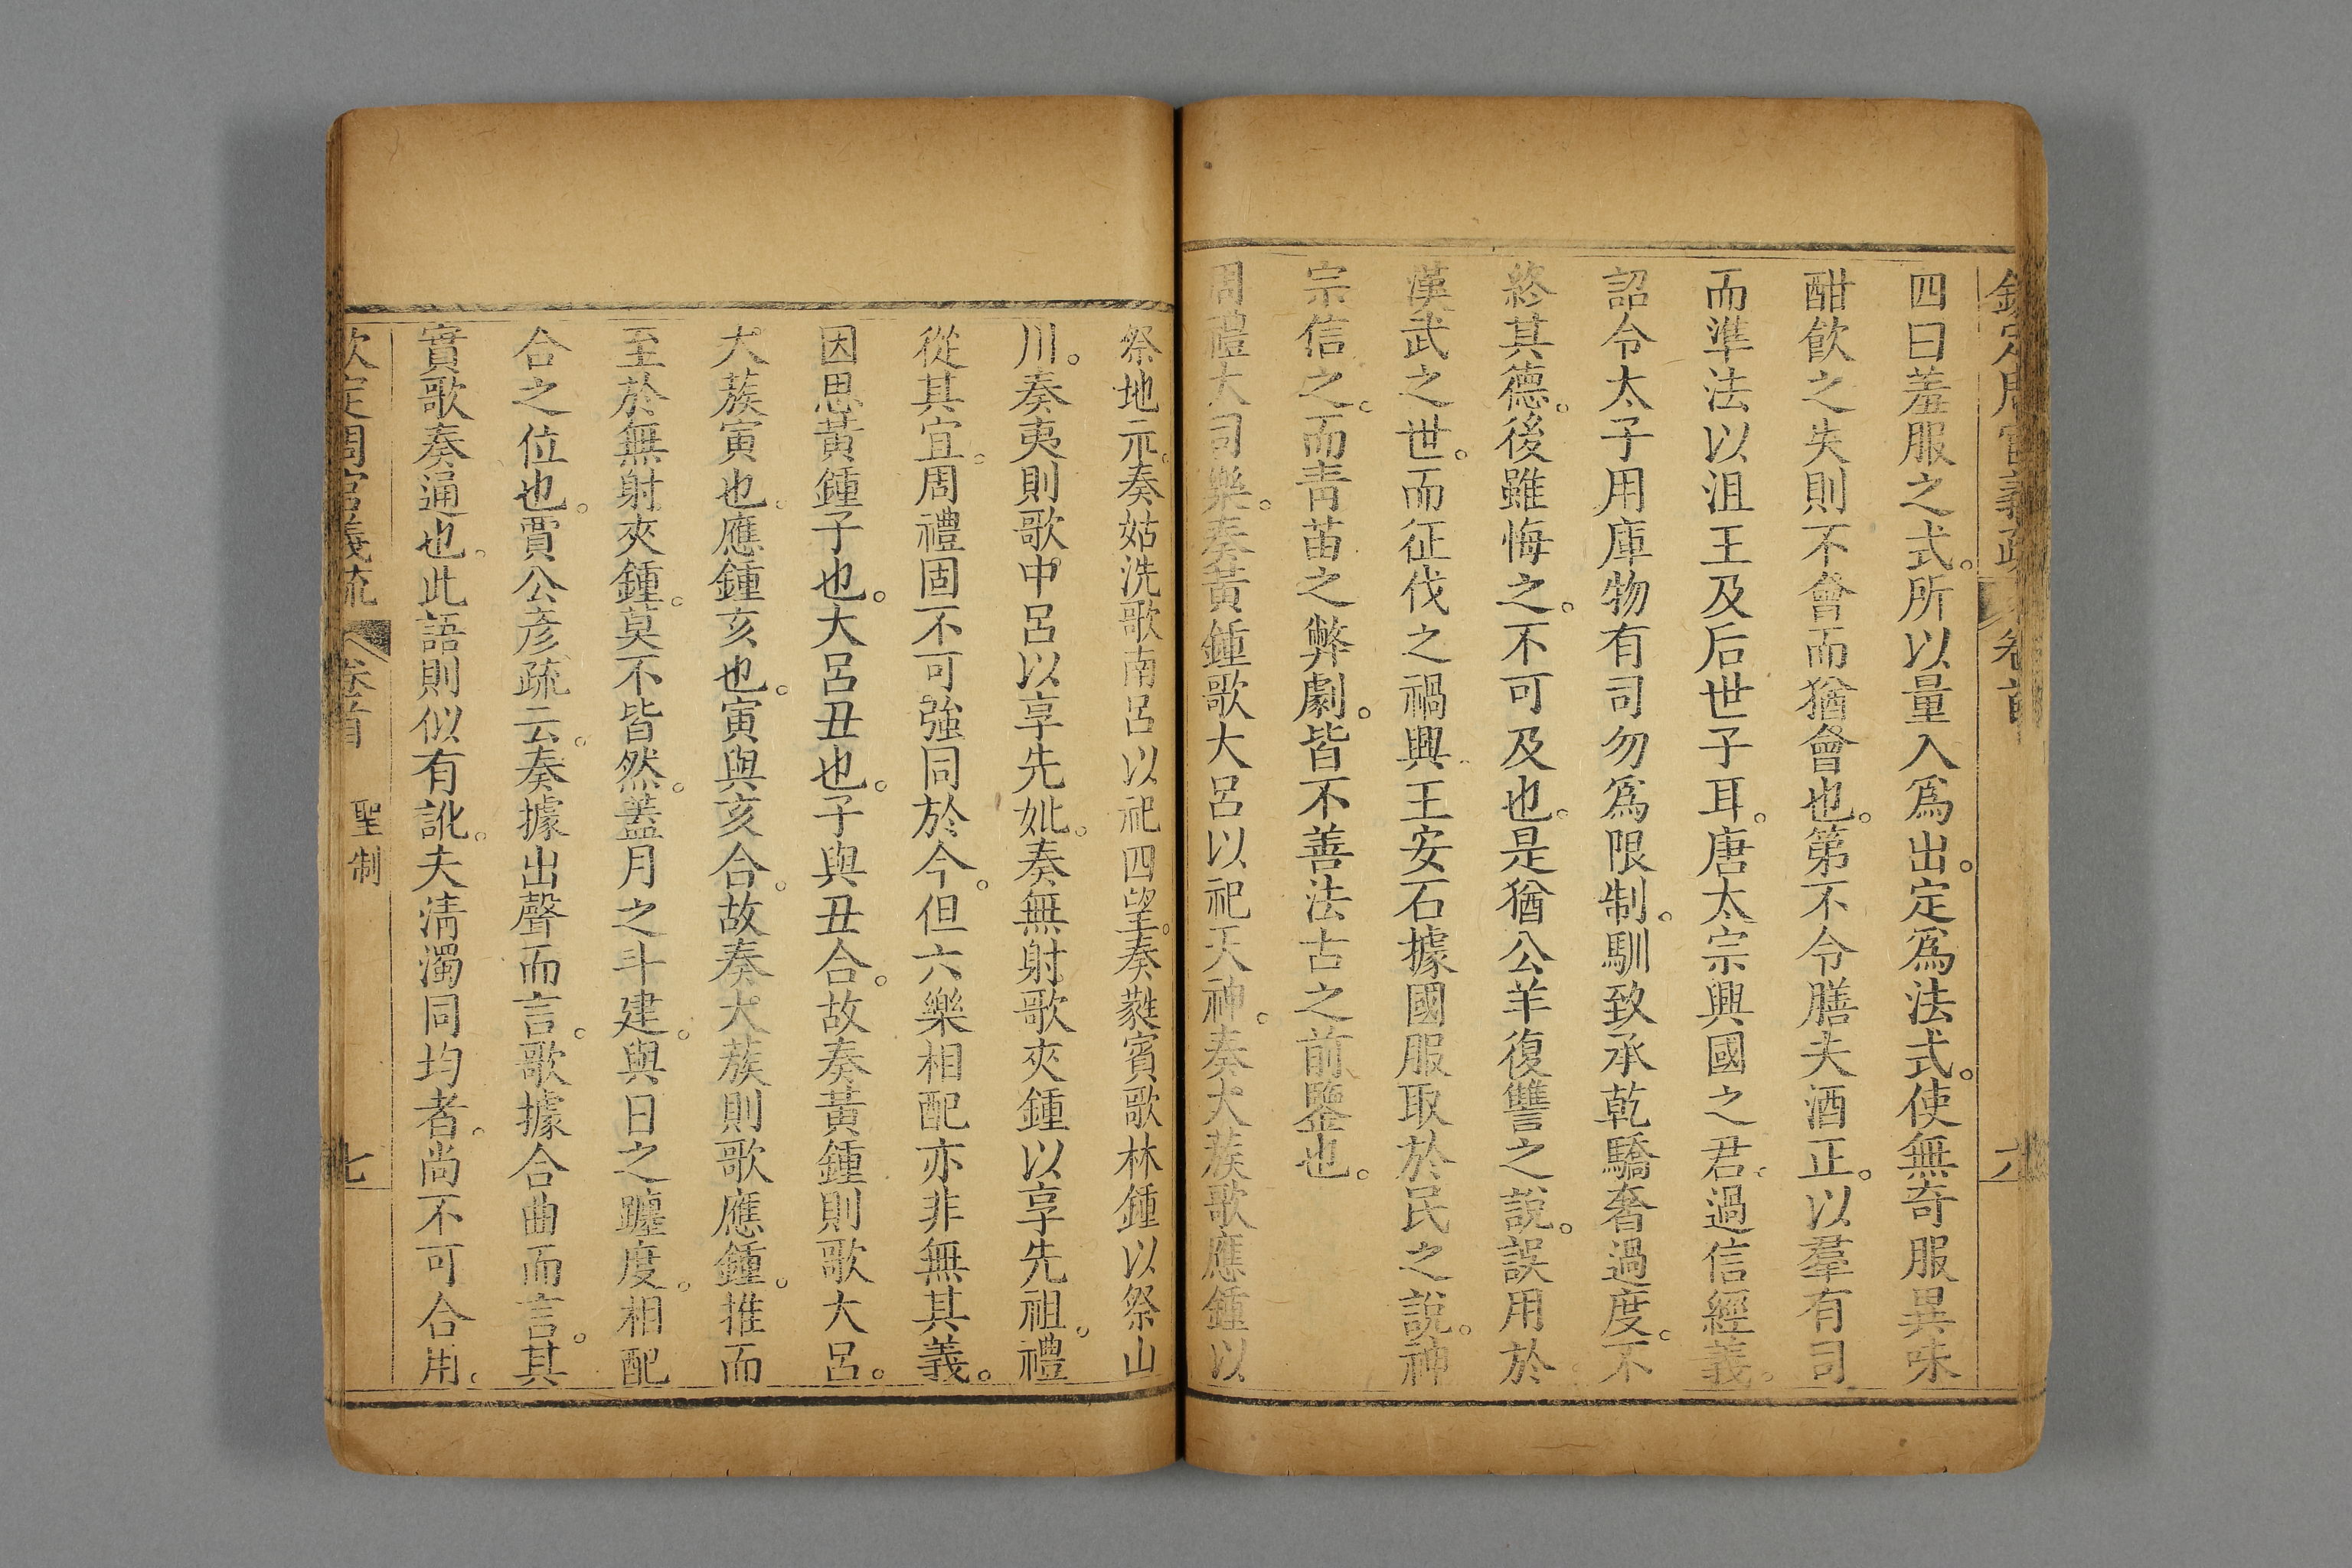 欽定周官義疏 卷首 六
四曰羞服之式。所以量入爲出。定爲法式。使無奇服異味
酣飲之失則不會而猶會也。第不令膳夫酒正。以羣有司
而準法以沮王及后世子耳。唐太宗興國之君。過信經義。
詔令太子用庫物有司勿爲限制。馴致承乾驕奢過度。不
終其德。後雖悔之。不可及也。是猶公羊復讐之說。誤用於
漢武之世。而征伐之禍興。王安石據國服取於民之說。神
宗信之。而靑苗之弊劇。皆不善法古之前鑒也。
周禮大司樂。奏黃鍾歌大呂以祀天神。奏大蔟歌應鍾以
祭地示。奏姑洗歌南呂以祀四望。奏蕤賓歌林鍾以祭山
川。奏夷則歌中呂以享先妣。奏無射歌夾鍾以享先祖。禮
從其宜。周禮固不可強同於今。但六樂相配亦非無其義。
因思黃鍾子也。大呂丑也。子與丑合。故奏黃鍾則歌大呂。
大蔟寅也。應鍾亥也。寅與亥合。故奏大蔟則歌應鍾。推而
至於無射夾鍾。莫不皆然。蓋月之斗建。與日之躔度。相配
合之位也。賈公彥疏云。奏據出聲而言。歌據合曲而言。其
實歌奏通也。此語則似有訛。夫淸濁同均者。尚不可合用。
欽定周官義疏 卷首 聖制 七